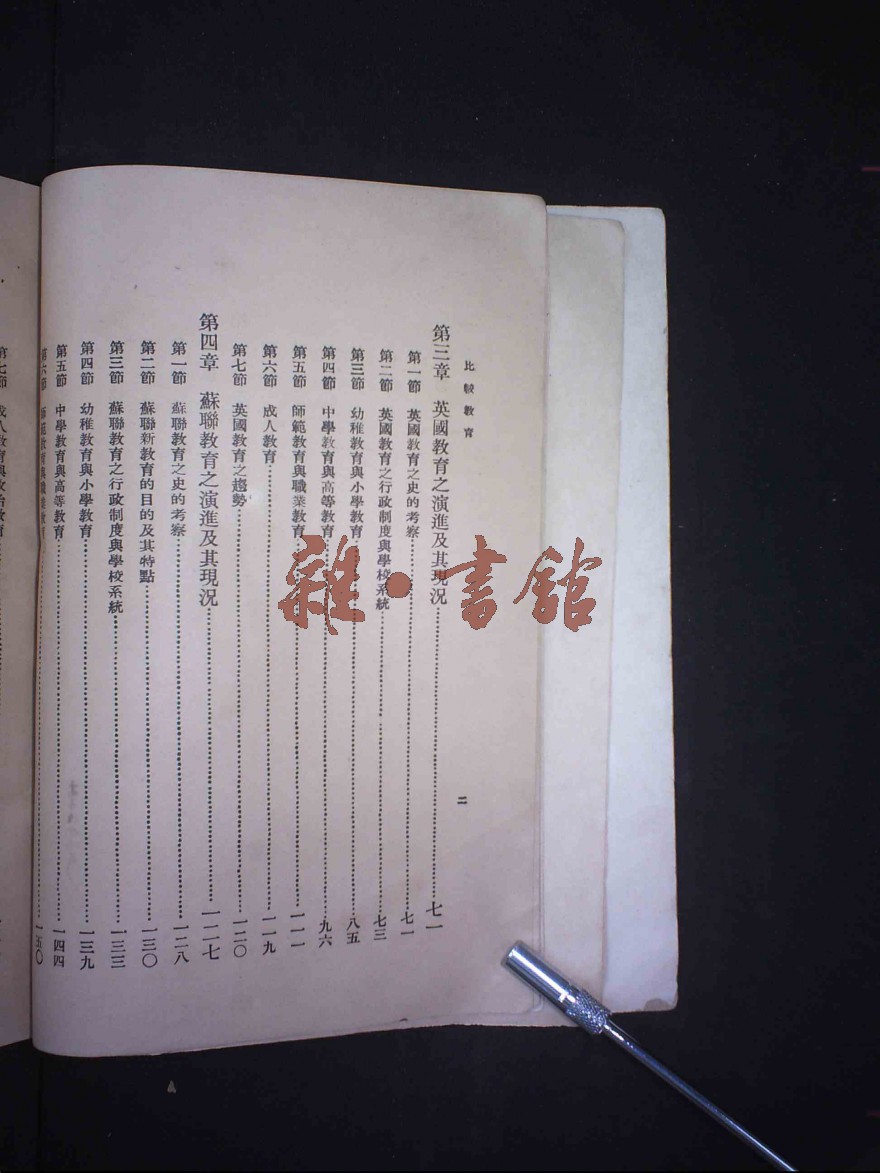 比較教育
二
第三章 英國教育之演進及其現況…………七一
第一節 英國教育之史的考察…………七一
第二節 英國教育之行政制度與學校系統…………七三
第三節 幼稚教育與小學教育…………八五
第四節 中學教育與高等教育…………九六
第五節 師範教育與職業教育…………一一一
第六節 成人教育…………一一九
第七節 英國教育之趨勢…………一二〇
第四章 蘇聯教育之演進及其現況…………一二七
第一節 蘇聯教育之史的考察…………一二八
第二節 蘇聯新教育的目的及其特點…………一三〇
第三節 蘇聯教育之行政制度與學校系統…………一三三
第四節 幼稚教育與小學教育…………一三九
第五節 中學教育與高等教育…………一四四
第六節 師範教育與職業教育…………一五〇
第七節 成人教育與政治教育
雜·書館